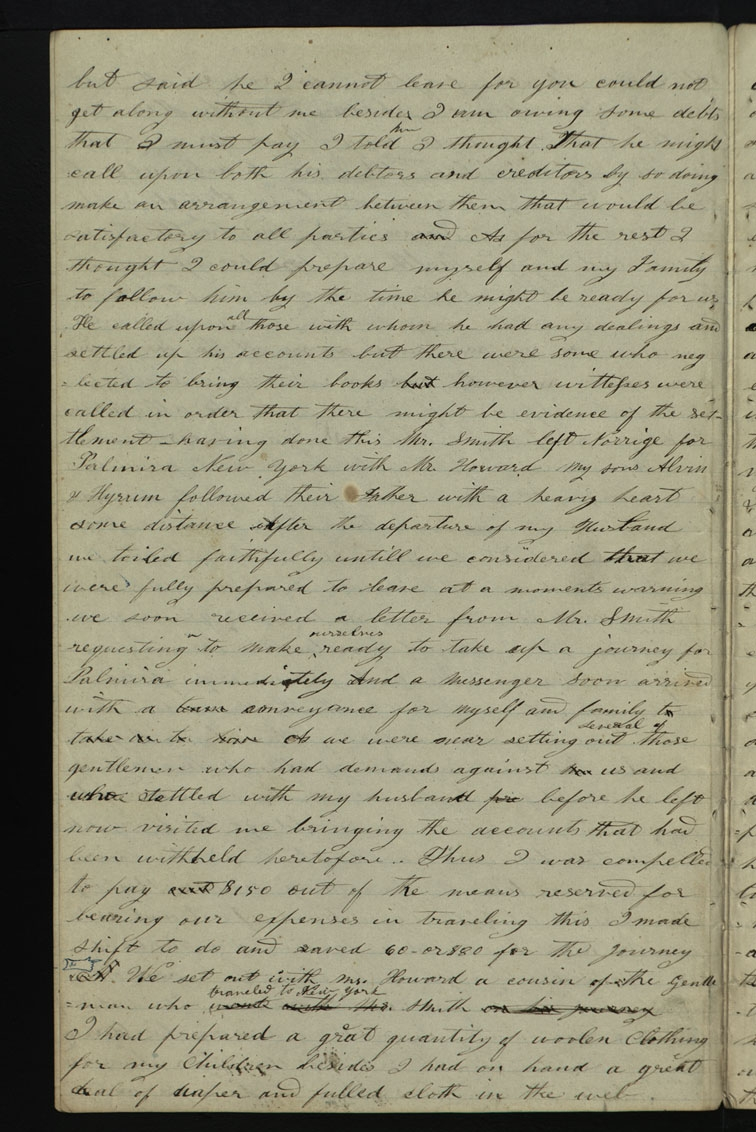 but said he I cannot leave for you could not
get along without me besides I am owing some debts
that I must pay I told him I thought That he might
call upon both his debtors and creditors by so doing
make an arrangement between them that would be
satisfactory to all parties and As for the rest I
thought I could prepare myself and my Family
to follow him by the time he might be ready for us
He called upon all those with whom he had any dealings and
settled up his accounts but there were some who neg
=lected to bring their books but however wittesses were
called in order that there might be evidence of the set-
tlement - having done this Mr. Smith left Norrige for
Palmira New York with Mr. Howard my sons Alvin
& Hyrum followed their Father with a heavy heart
some distance After the departure of my Husband
we toiled faithfully untill we considered that we
were fully prepared to leave at a moments warning
we soon received a letter from Mr. Smith
requesting to make ourselves ready to take up a journey for
Palmira immediately And a messenger soon arrived
with a conveyance for myself and family to
take As we were near setting out several of those
gentlemen who had demands against us and
who settled with my husband before he left
now visited me bringing the accounts that had
been withheld heretofore.. Thus I was compelled
to pay out $150 out of the means reserved for
bearing our expenses in traveling this I made
shift to do and saved 60- or $80 for the Journey
We set out with Mr. Howard a cousin of the Gentle
=man who traveled to New York went with Mr. Smith on his journey
I had prepared a great quantity of woolen Clothing
for my Children besides I had on hand a great
deal of diaper and fulled cloth in the web.